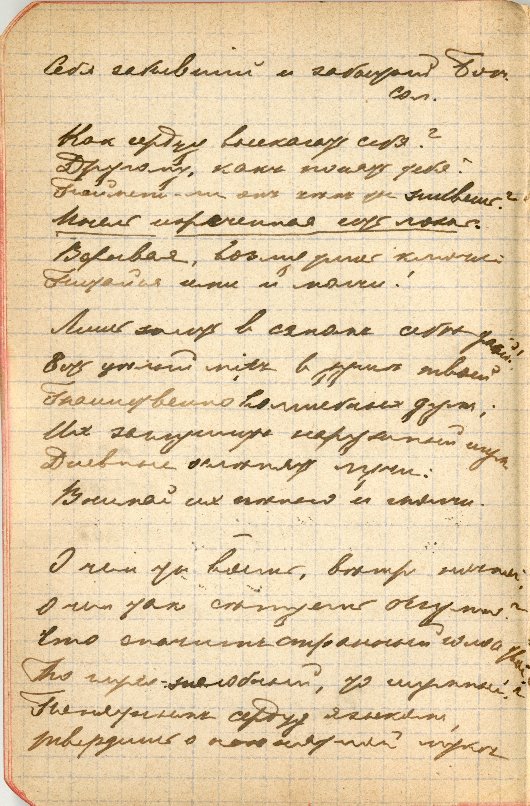 Себя забывший и забытый Бог.
сам.
Как сердцу высказать себя?
Другому, какъ понять тебя?
Пойметъ ли онъ чѣмъ ты живешь?
Мысль изреченная есть ложь.
Взрывая, возмутишь ключи
Питайся ими и молчи!
Лишь жить в самомъ себѣ умѣй!
Есть цѣлый мiръ в душѣ твоей
Таинственно волшебныхъ думъ;
Их заглушитъ наружный шумъ
Дневные ослѣпятъ лучи:
Внимай их пѣнью и молчи.
О чем ты воешь, вѣтр ночной
О чем так сѣтуешь безумно?
Что значитъ странный голос твой
То глухо жалобный, то шумный?
Понятнымъ сердцу языкомъ,
твердишь о непонятной мукѣ